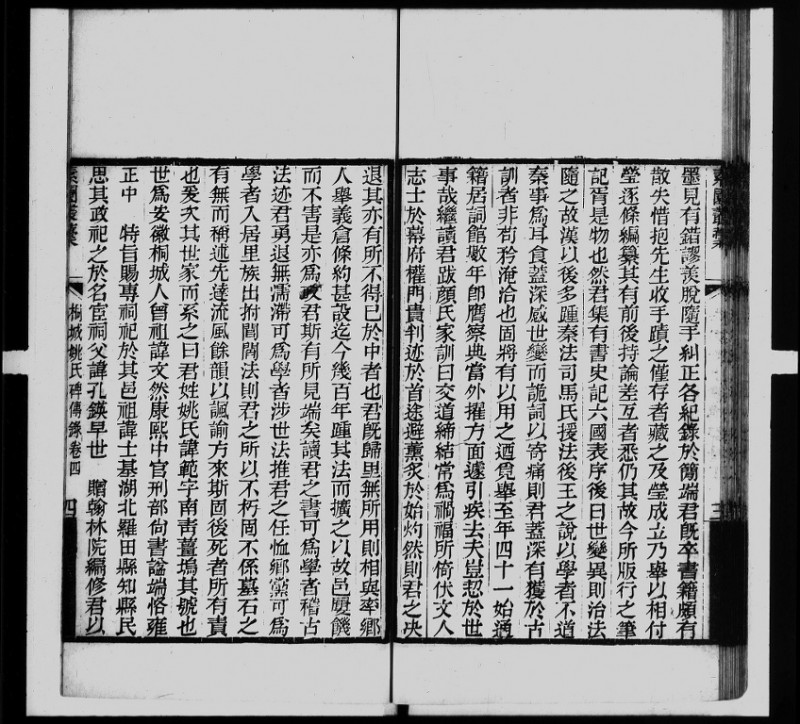 墨見有錯謬羨脫隨手糾正各紀錄於簡端君既卒書籍頗有
散失惜抱先生收手蹟之僅存者藏之及瑩成立乃舉以相付
瑩逐條編纂其有前後持論差互者悉仍其故今所版行之筆
記胥是物也然君集有書史記六國表序後曰世變異則治法
隨之故漢以後多踵秦法司馬氏援法後王之說以學者不道
秦事爲耳食蓋深感世變而詭詞以寄痛則君蓋深有獲於古
訓者非苟矜淹洽也固將有以用之迺竟舉至年四十一始通
籍居詞館數年即膺察典當外擢方面遽引疾去夫豈恝於世
事哉繼讀君跋顏氏家訓曰交道締結常爲禍福所倚伏文人
志士於幕府權門貴判迹於首途避薰炙於始灼然則君之決
退其亦有所不得已於中者也君旣歸里無所用則相與率鄉
人舉義倉條約甚設迄今幾百年踵其法而擴之以故邑屢饑
而不害是亦爲政君斯有所見端矣讀君之書可爲學者稽古
法迹君勇退無濡滯可爲學者涉世法推君之任恤鄉黨可爲
學者入居里族出拊閭閻法則君之所以不朽固不係墓石之
有無而稱述先達流風餘韻以諷諭方來斯固後死者所有責
也爰次其世家而系之曰君姓姚氏諱範字南青薑塢其號也
世爲安徽桐城人曾祖諱文然康熙中官刑部尙書諡端恪雍
正中　特旨賜專祠祀於其邑祖諱士基湖北羅田縣知縣民
思其政祀之於名宦祠父諱孔鍈早世　贈翰林院編修君以
桐城姚氏碑傳錄卷四
四